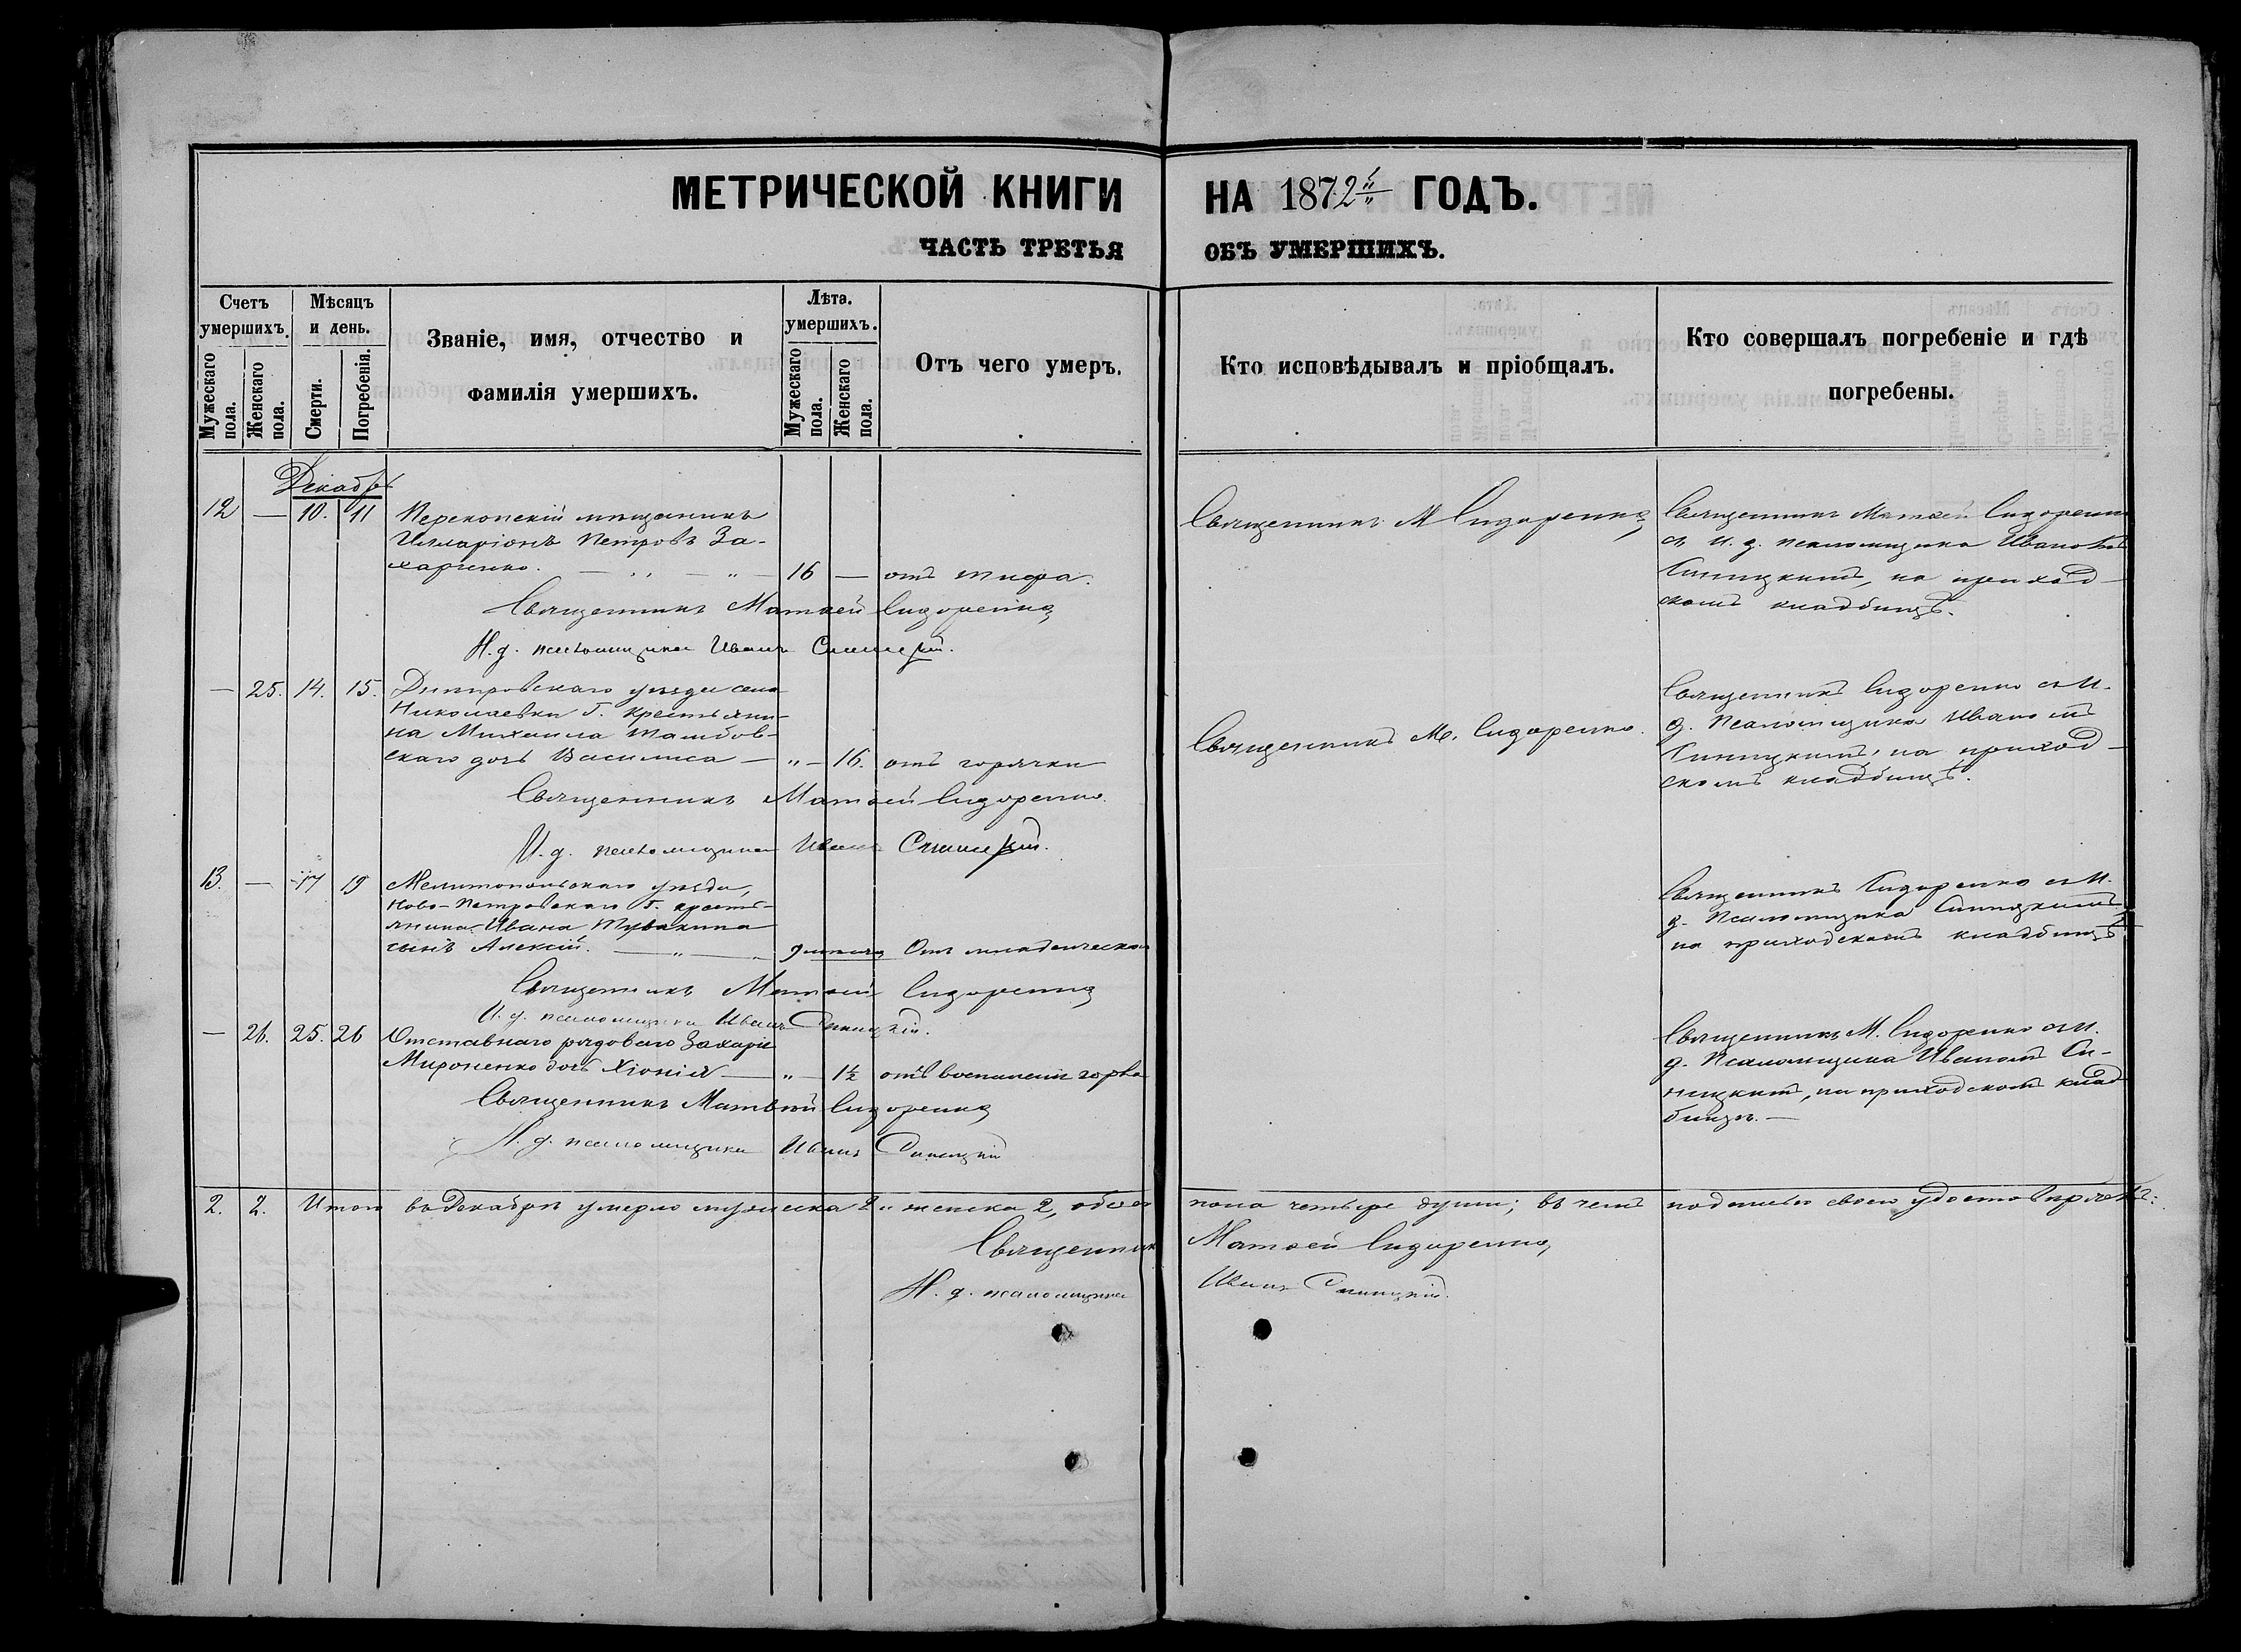 МЕТРИЧЕСКОЙ КНИГИ НА 1872й ГОДЪ.
ЧАСТЬ ТРЕТЬЯ ОБЪ УМЕРШИХЪ.
Счетъ умершихъ.
Мужескаго пола.
Женскаго пола.
Мѣсяцъ и день.
Смерти.
Погребенія.
Званіе, имя, отчество и
фамилія умершихъ.
Лѣта. умершихъ.
Мужескаго пола.
Женскаго пола.
Отъ чего умеръ.
Кто исповѣдывалъ и пріобщалъ.
Кто совершалъ погребеніе и гдѣ
погребены.
Декабрь
12 — 10. 11 Перекопскій мѣщанинъ
Илларіонъ Петровъ За-
харченко. — „ — „ — 16 — отъ тифа.
Священникъ М Сидоренко
Священникъ Матѳей Сидоренко
съ И. д. псаломщика Иваномъ
Синицкимъ, на приход-
скомъ кладбищѣ.
Священникъ Матѳей Сидоренко
И. д. псаломщика Иванъ Синицкій.
— 25. 14. 15. Днѣпровскаго уѣзда села
Николаевки Г. крестьяни-
на Михаила Тамбов-
скаго дочь Василиса — „ — 16. отъ горячки
Священникъ М. Сидоренко.
Священникъ Сидоренко съ И.
д. Псаломщика Иваномъ
Синицкимъ, на приход-
скомъ кладбищѣ.
Священникъ Матѳей Сидоренко.
И. д. псаломщика Иванъ Синицкій.
13. — 17 19 Мелитопольскаго уѣзда,
Ново-Петровскаго Г. кресть-
янина Ивана
сынъ Алексій. — „ — Отъ младенческой
Священникъ Сидоренко съ И.
д. Псаломщика Синицкимъ
на приходскомъ кладбищѣ
Священникъ Матѳей Сидоренко
И. д. псаломщика Иванъ Синицкій.
— 26. 25. 26 Отставнаго рядоваго Захарія
Мироненко дочь Хіонія — „ — 1½ отъ воспаленія горла
Священникъ М. Сидоренко съ И.
д. Псаломщика Иваномъ Си-
ницкимъ, на приходскомъ клад-
бищѣ. —
Священникъ Матвѣй Сидоренко
И. д. псаломщика Иванъ Синицкій
2. 2. Итого въ Декабрѣ умерло мужеска 2 и женска 2, обоего пола четыре души; въ чемъ подписью своею удостовѣряемъ:
Священникъ Матѳей Сидоренко,
И. д. псаломщика Иванъ Синицкій.